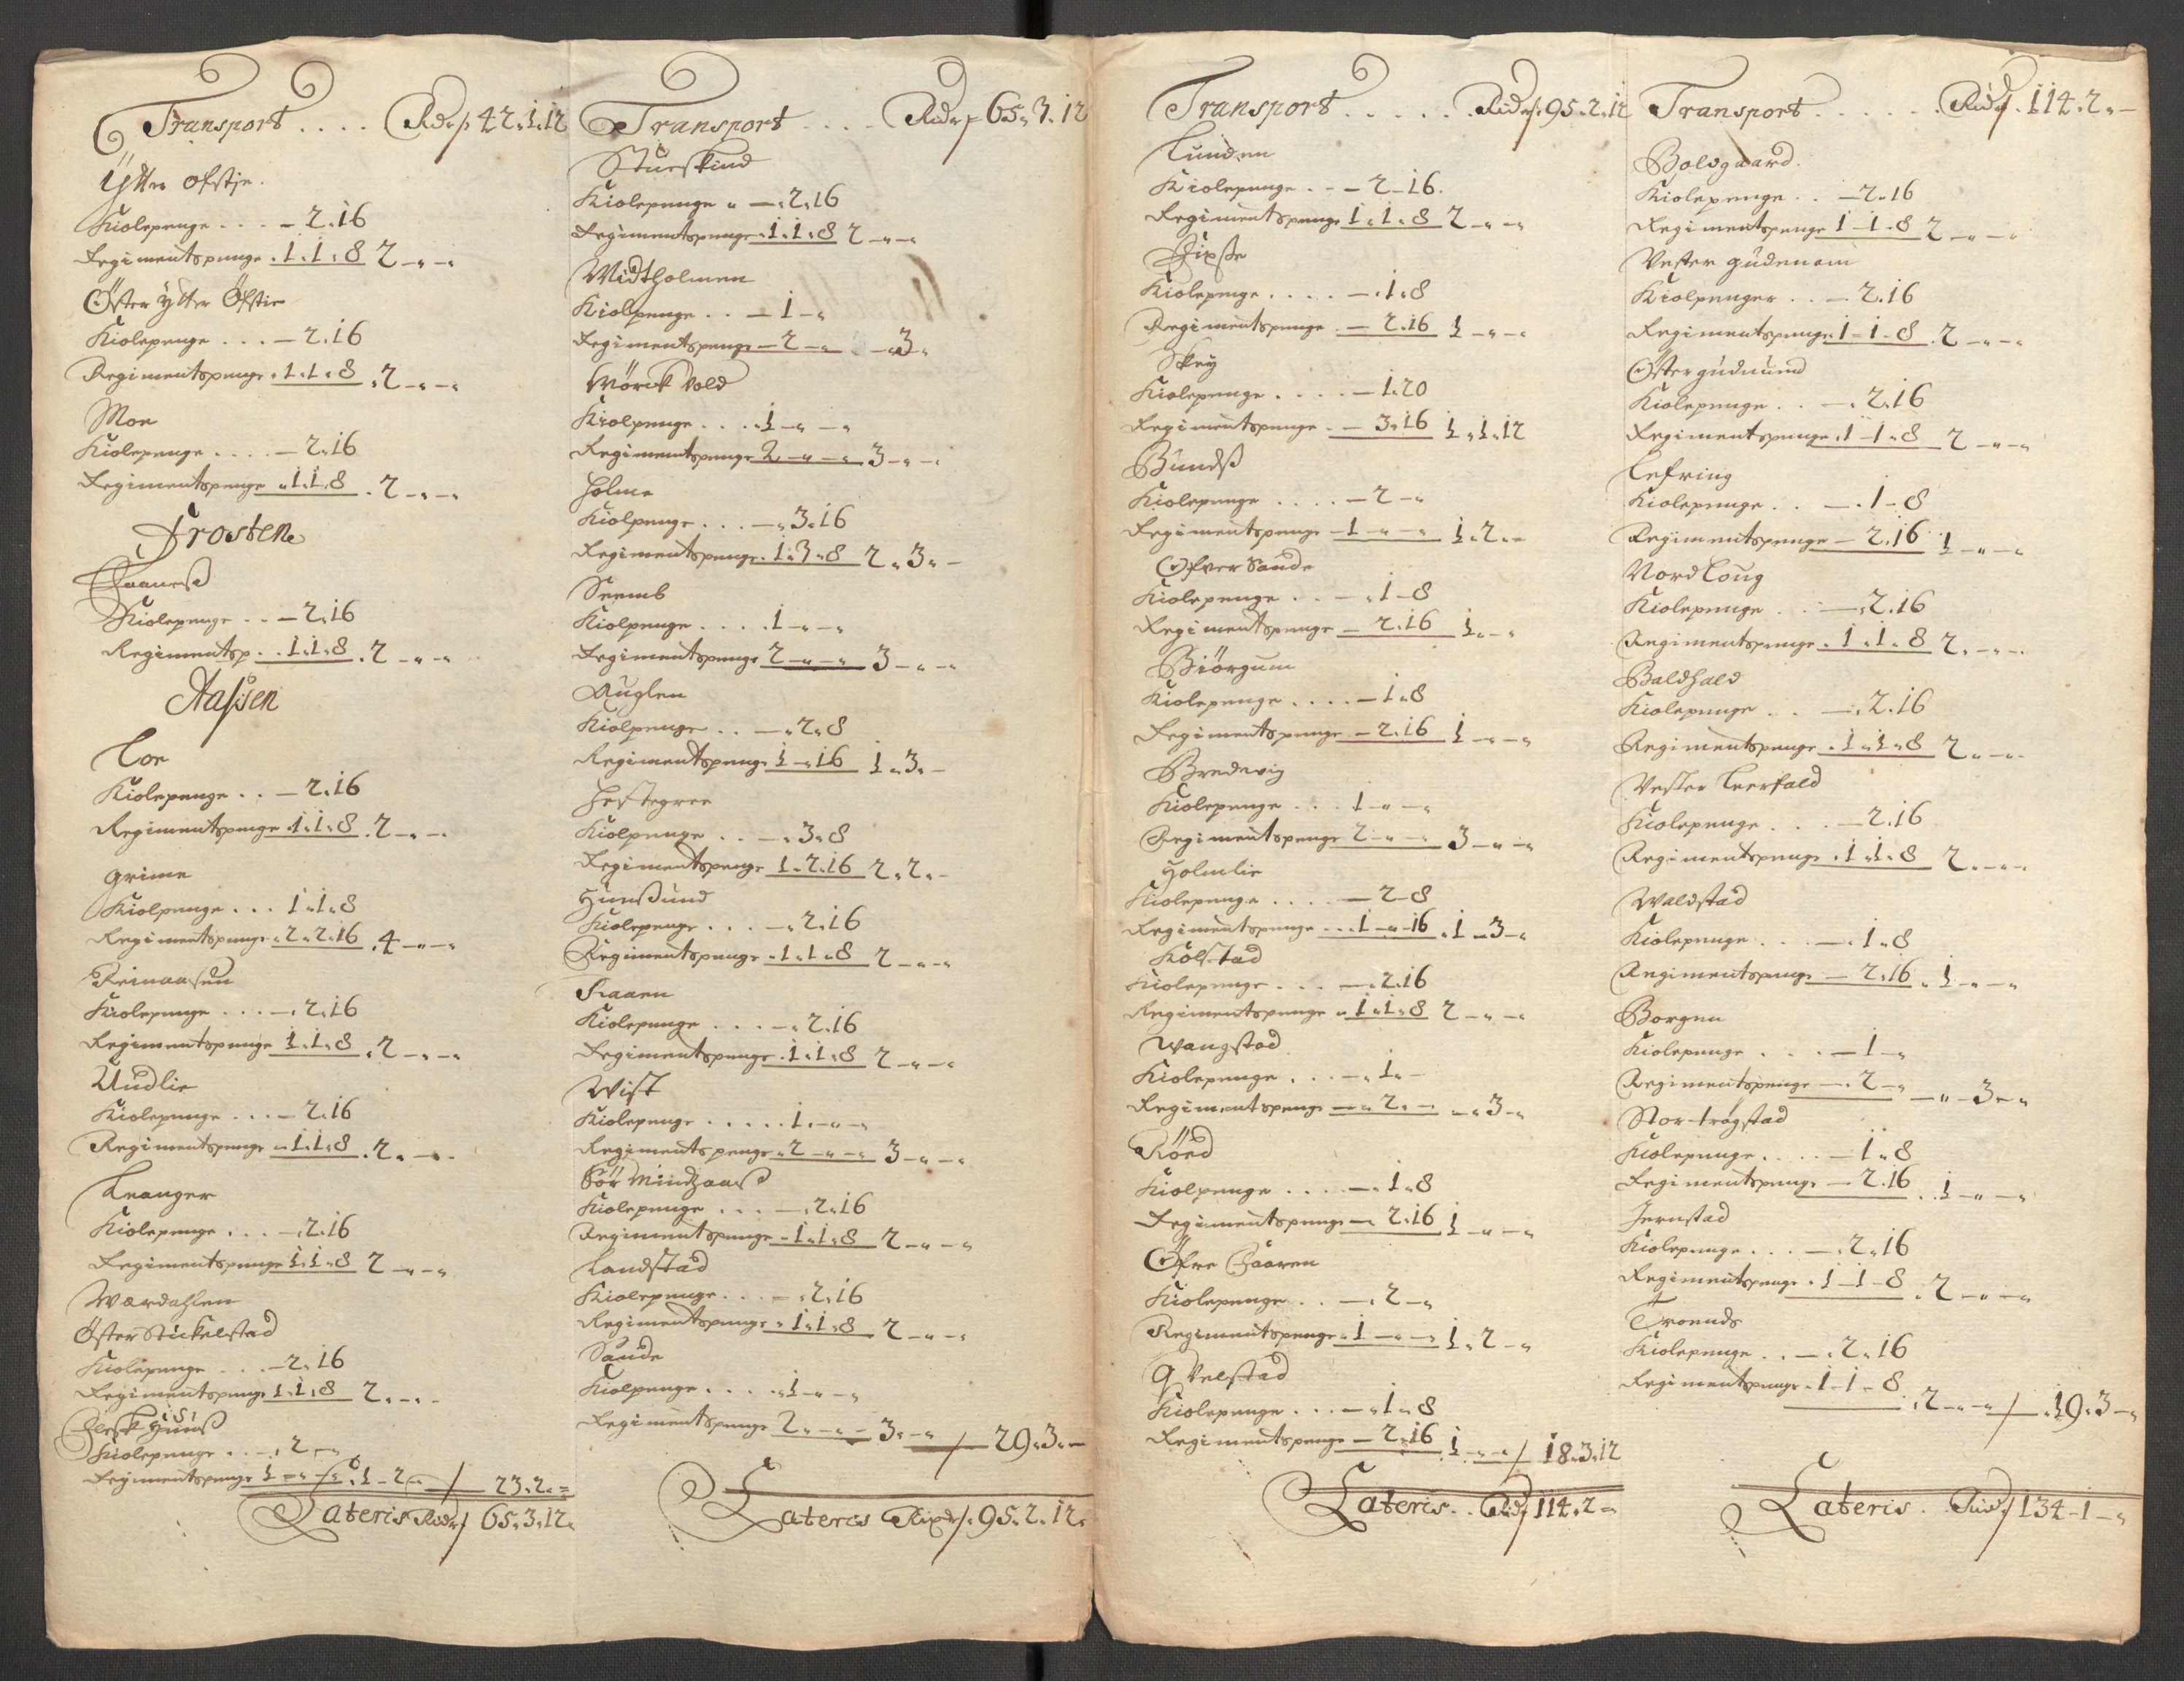 Transport .... Rdr 42.1.12
Ytter ofstie.
Kiolepenge ... - 2.16
Regimentspenge . 1.1.8 2 - " - "
Öster Ytter Öfstie
Kiolepenge ... - 2.16
Regimentspenge . 1.1.8 . 2 - " - "
Moe
Kiolepenge .... - 2.16
Regimentspenge " 1.1.8 . 2 - " - "
Frosten
Kiolepenge .. - 2.16
Regimentsp. .. 1.1.8 . 2 - " - "
Aassen
Loe
Kiolepenge .. - 2.16
Regimentspenge . 1.1.8 . 2 - " -
Grime
Kiolpenge ... 1.1.8
Regimentspenge . 2.2.16 . 4 - " - "
Kiolepenge ... - . 2.16
Regimentspenge 1.1.8 . 2 - " - "
Uudlie
Kiolepenge ... - 2.16
Regimentspenge - 1.1.8 . 2 " - " -
Leanger
Kiolepenge ... - . 2.16
Regimentspenge 1.1.8 2 - " - "
Wærdahlen
Öster Stickelstad
Kiolepenge ... - 2.16
Regimentspenge 1.1.8 2 . - . -
Kiolepenge .. - . 2 - "
Regimentspenge 1 - " - " . 1 - 2 - " / 23.2. =
Lateris Rdr 65.3.12.
Transport .... Rdr 65.3.12
Stueskind
Kiolepenge " - . 2.16
Regimentspenge . 1.1.8 2 - " - "
Midtholmen
Kiolpenge .. - 1 - "
Regimentspenge - 2 - " - " 3 "
Mörck Vold
Kiolpenge .... 1 - " - "
Regimentspenge 2 - " - " 3 - " - "
Holme
Kiolpenge ... - . 3.16
Regimentspenge . 1.3.8 2 . 3 . -
Seemb
Kiolpenge .... 1 - " - "
Regimentspenge 2 - " - " 3 - " - "
Auglen
Kiolpenge .. - . 2.8
Regimentspenge 1 - 16 1 . 3 . -
Hestegree
Kiolpenge .. - . 3.8
Regimentspenge 1.2.16 2 . 2 . -
Hunssund
Kiolepenge ... - . 2.16
Regimentspenge . 1.1.8 2 - " - "
Kiolepenge ... - . 2.16
Regimentspenge . 1.1.8 2 - " - "
Wist
Kiolepenge ..... 1 . - " - "
Regimentspenge . 2 - " - " 3 - " - "
Sör Mindhaass
Kiolepenge ... - . 2.16
Regimentspenge - 1.1.8 2 - " - "
Landstad
Kiolepenge ... - . 2.16
Regimentspenge . 1.1.8 2 - " - "
Sande
Kiolpenge .... . 1 - " - "
Regimentspenge 2 . - " - 3 . - " / 29.3. -
Lateris Rixdr 95.2.12.
Transport ..... Rixdr. 95.2.12
Lunden
Kiolepenge .. - 2 - 16.
Regimentspenge 1.1.8 2 - " - "
Kiolepenge .... - . 1.8
Regimentspenge . - 2.16 1 - " - "
Skey
Kiolepenge .... - 1.20
Regimentspenge . - 3.16 1.1.12
Kiolepenge .... - 2 - "
Regimentspenge - 1 - " - " 1.2. -
Öfver Sande
Kiolepenge .. - . 1 - 8
Regimentspenge - 2.16 1 . - "
Biörgum
Kiolepenge .... - 1.8
Regimentspenge - 2.16 1 - " - "
Bredevig
Kiolepenge ... 1 - " - "
Regimentspenge 2 - " - " 3 - " - "
Holmlie
Kiolepenge .... - 2 - 8
Regimentspenge ... 1 - " - 16 . 1 - 3 - "
Kolstad
Kiolepenge ... - . 2.16
Regimentspenge " 1.1.8 2 - " - "
Wangstad
Kiolepenge ... - . 1 . -
Regimentspenge - " 2. - - . 3 - "
Röed
Kiolpenge .... - . 1.8
Regimentspenge - 2.16 1 - " - "
Kiolepenge .. - . 2 - "
Regimentspenge " 1 - " - " 1 . 2 - "
Qvelstad
Kiolepenge ... - . 1.8
Regimentspenge - 2.16 1 - " - " / 18.3.12
Lateris .. Rdr 114.2 =
Transport ...... Rdr. 114.2. -
Bolsgaard.
Kiolepenge .. - 2.16
Regimentspenge 1 - 1 - 8 2 - " - "
Vester gudenom
Kiolpenger .. - 2.16
Regimentspenge 1 - 1 - 8 . 2 - " - "
Öster gudnumd
Kiolepenge .. - . 2.16
Regimentspenge . 1 - 1 - 8 2 - " - "
Lefring
Kiolepenge .. - . 1 - 8
Regimentspenge - 2.16 1 - " - "
Nordloug
Kiolepenge .. - . 2.16
Regimentspenge . 1.1.8 2 . - " -
Baldhald
Kiolepenge .. - . 2.16
Regimentspenge . 1.1.8 2 . - " -
Vester Leerfald
Kiolepenge ... - 2.16
Regimentspenge . 1.1.8 2 . - " - "
Waldstad
Kiolepenge ... - . 1.8
Regimentspenge - 2.16 . 1 - " - "
Borgen
Kiolepenge ... - 1 - "
Regimentspenge - . 2 - " - " - 3 - "
Stor-trögstad
Kiolepenge .... - 1.8
Regimentspenge - 2.16 . 1 - " - "
Jernstad
Kiolepenge ... - . 2.16
Regimentspenge . 1 - 1 - 8 . 2 - " - "
Troends
Kiolepenge .. - . 2.16
Regimentspenge . 1 - 1 - 8 . 2 - " - " / . 19.3 - "
Lateris . Rixdr 134 - 1 - "